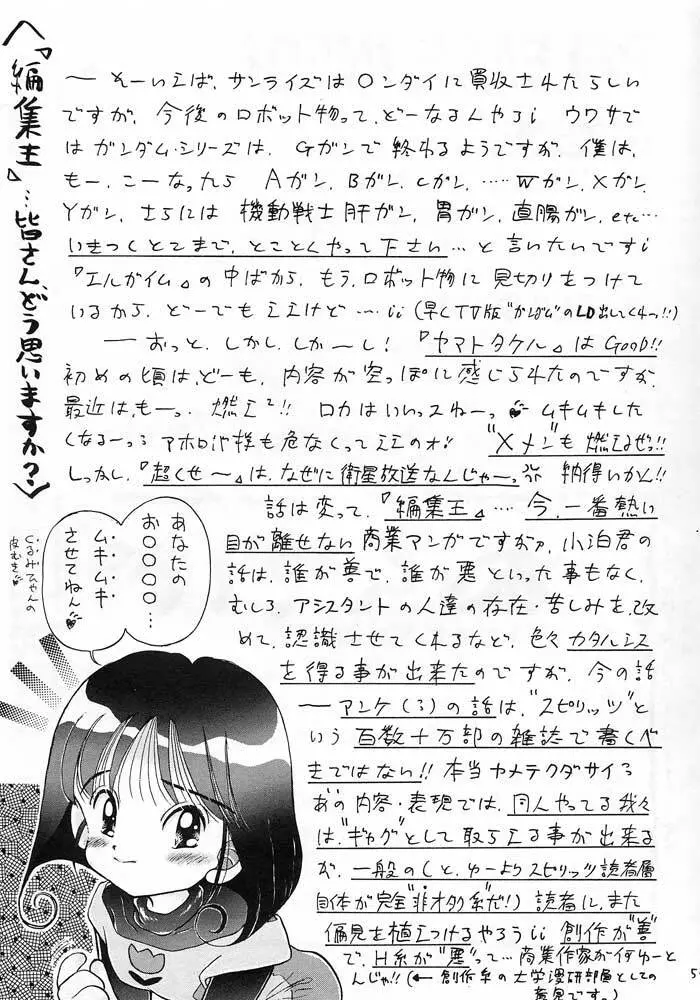 〈『編集王』…皆さん、どう思いますか？〉
── そーいえば、サンライズは〇ンダイに買収されたらしい
ですが、今後のロボット物って、どーなるんやろ！ ウワサで
はガンダム・シリーズは、Gガンで終わるようですが、僕は、
もー、こーなったら Aガン、Bガン、Cガン、……Wガン、Xガン、
Yガン、さらには 機動戦士肝ガン、胃ガン、直腸ガン、etc…
いきつくとこまで、とことんやって下さい…と言いたいです！
『エルガイム』の中ばから、もう、ロボット物に見切りをつけて
いるから、どーでもええけど…!!（早くTV版“かぼば”のLD出してくれっ!!）
── おっと、しかし、しか〜し！『ヤマトタケル』はGooD!!
初めの頃は、どーも、内容が空っぽに感じられたのですが、
最近は、もーっ、燃え!! ロカはいいっスねーっ♥ ムキムキした
くなるーっ！アホロ也様も危なくってええのォ! “Xメン”も燃えるぜっ!!
しっかし、『超くせ〜』は、なぜに衛星放送なんじゃーっ 納得いかん!!
話は変って、『編集王』…今、一番熱い
目が離せない商業マンガですがァ、小泊君の
話は、誰が善で、誰が悪といった事もなく、
むしろ、アシスタントの人達の存在・苦しみを、改
めて、認識させてくれるなど、色々カタルシス
を得る事が出来たのですが、今の話
── アンケ（ろ）の話は、“スピリッツ”と
いう百数十万部の雑誌で書くべ
きではない!! 本当カメテクダサイろ
あの内容・表現では、同人やってる我々
は、“ギャグ”として取らえる事が出来る
が、一般の（と、ゆーよりスピリッツ読者層
自体が完全“非オタク系”だ！）読者に、また
偏見を植えつけるやろう!! 創作が“善”
で、H系が“悪”って…商業作家が何ゆーと
んじゃ!!（← 創作系の大学漫研部員としての
意見です。）
あなたの
お〇〇〇〇…
ムキムキ
させてねん♥
くるみちゃんの
皮むき♥
5